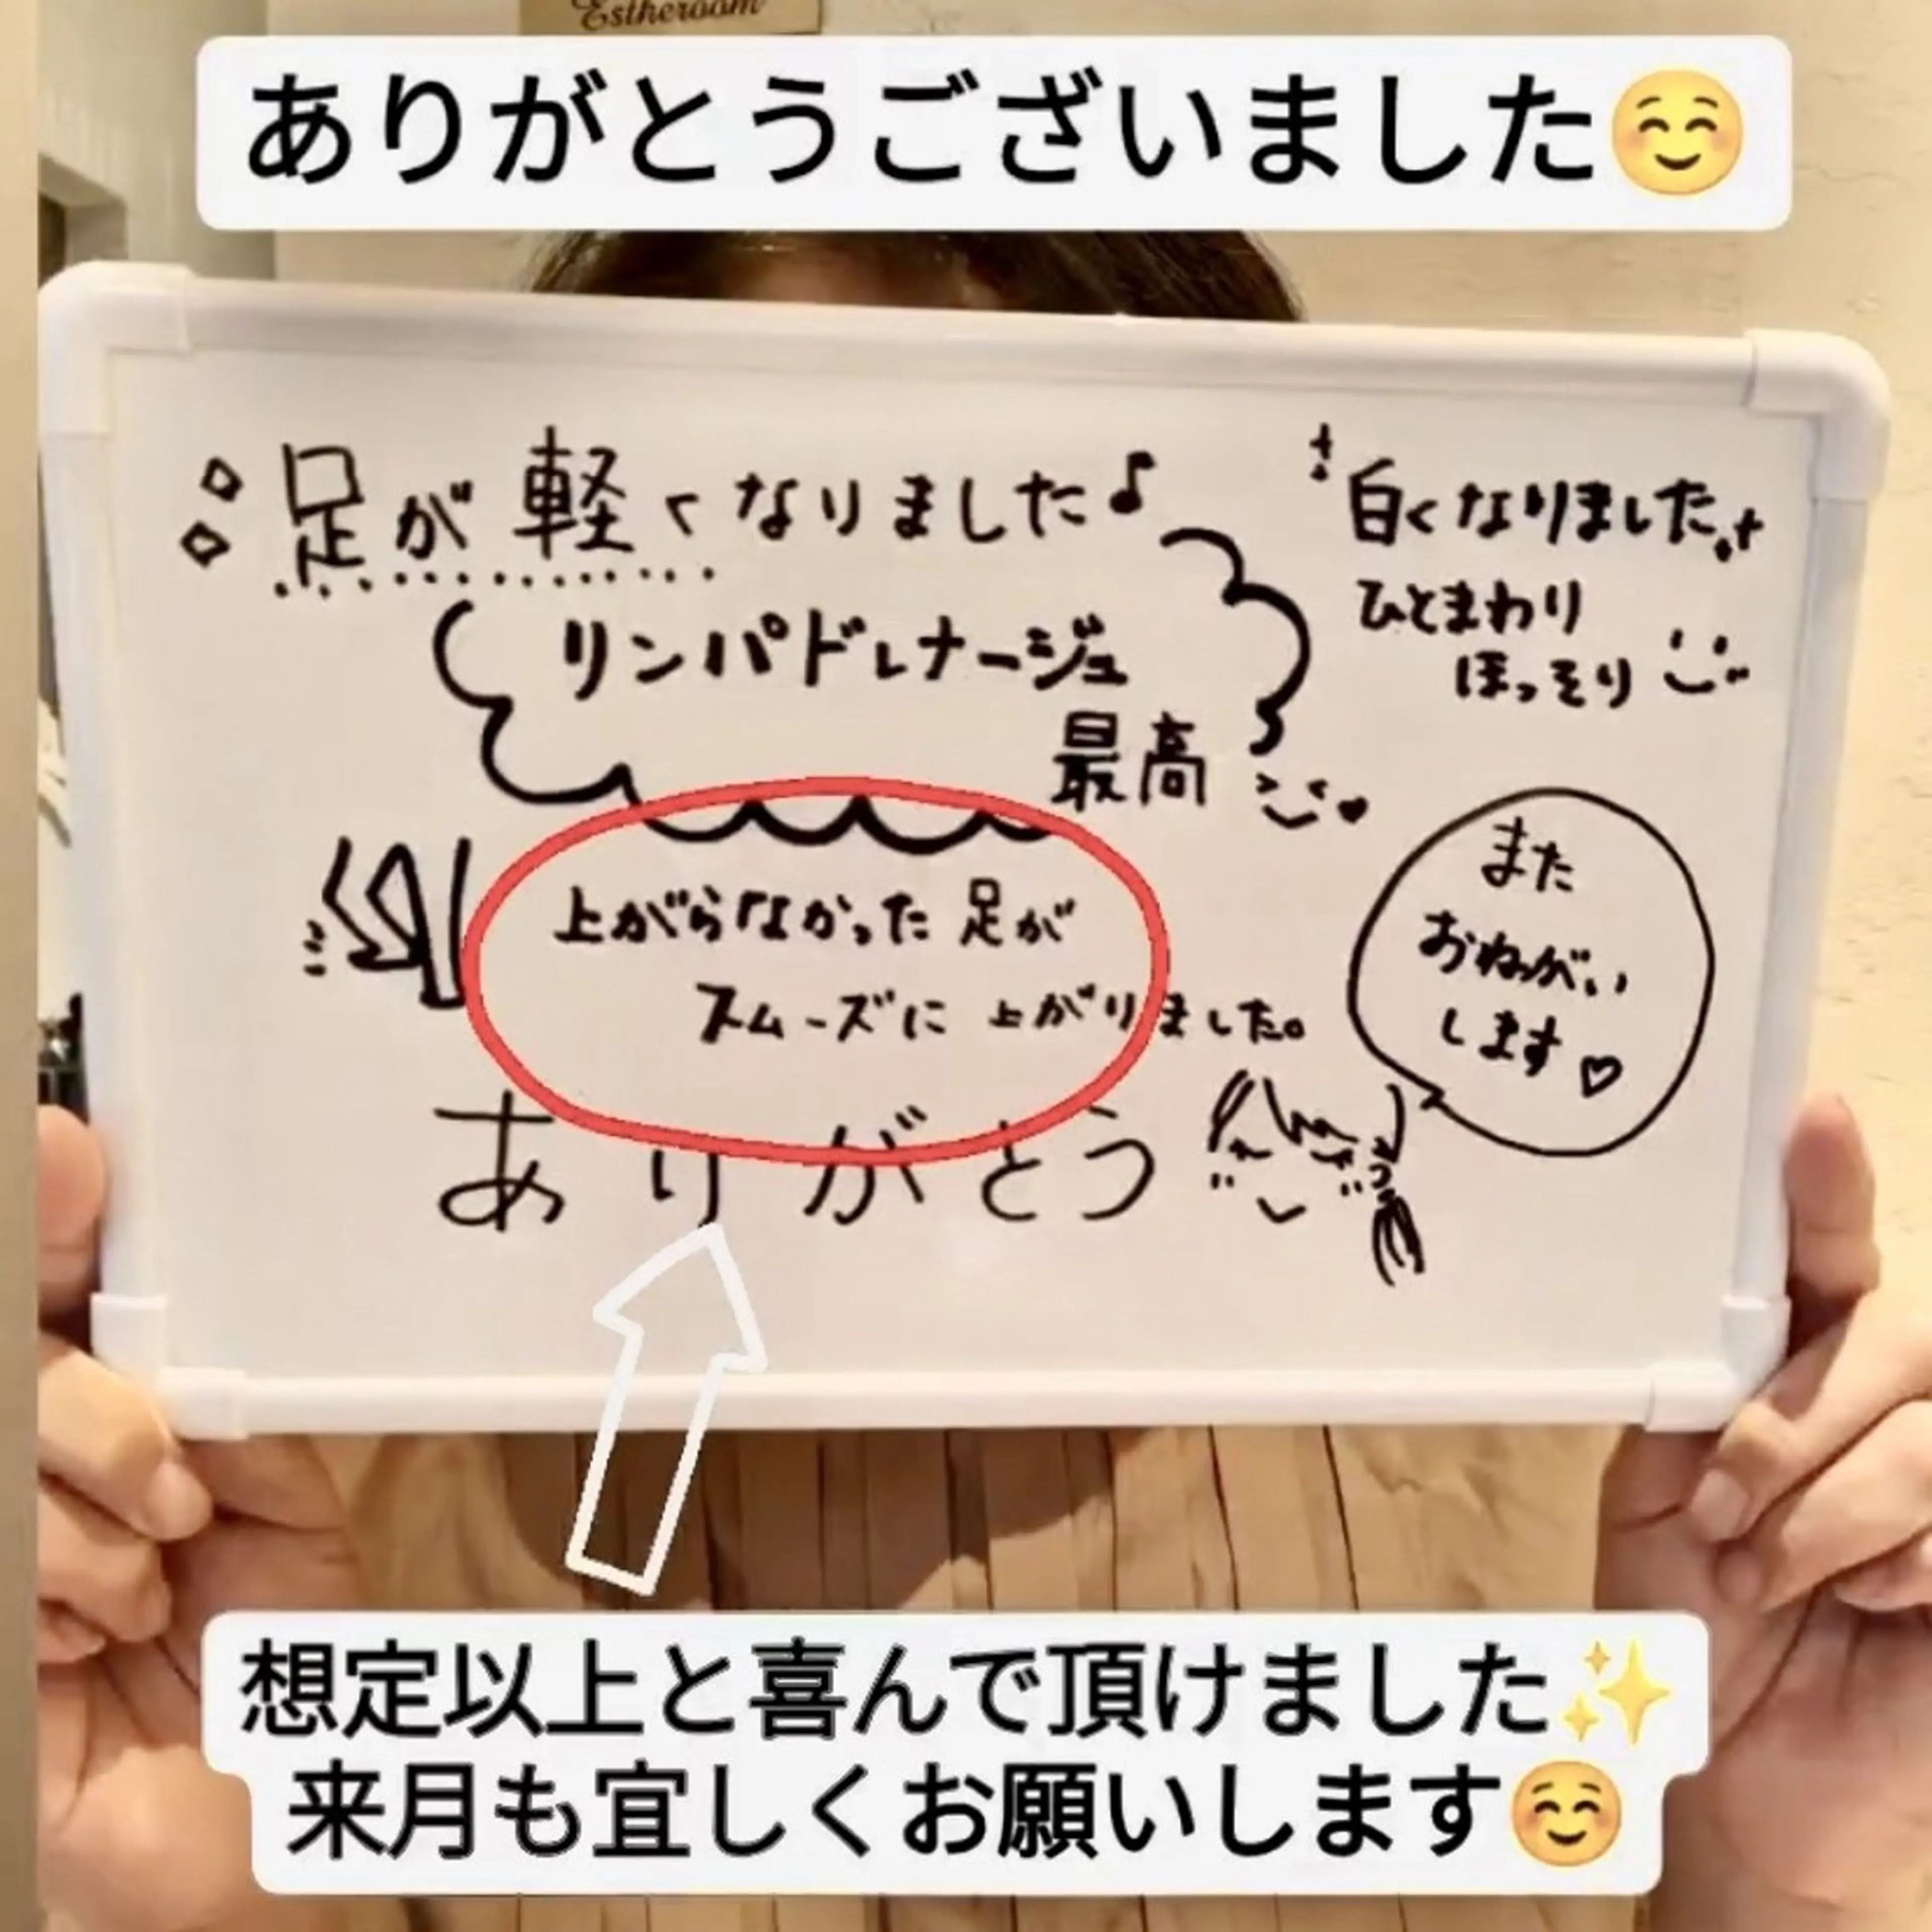 Estheroom
ありがとうございました☺️
足が軽くなりました♪
白くなりました
ひとまわり
ほっそり
リンパドレナージュ
最高
上がらなかった足が
スムーズに上がりました。
また
おねがい
します♡
ありがとう
想定以上と喜んで頂けました✨
来月も宜しくお願いします☺️